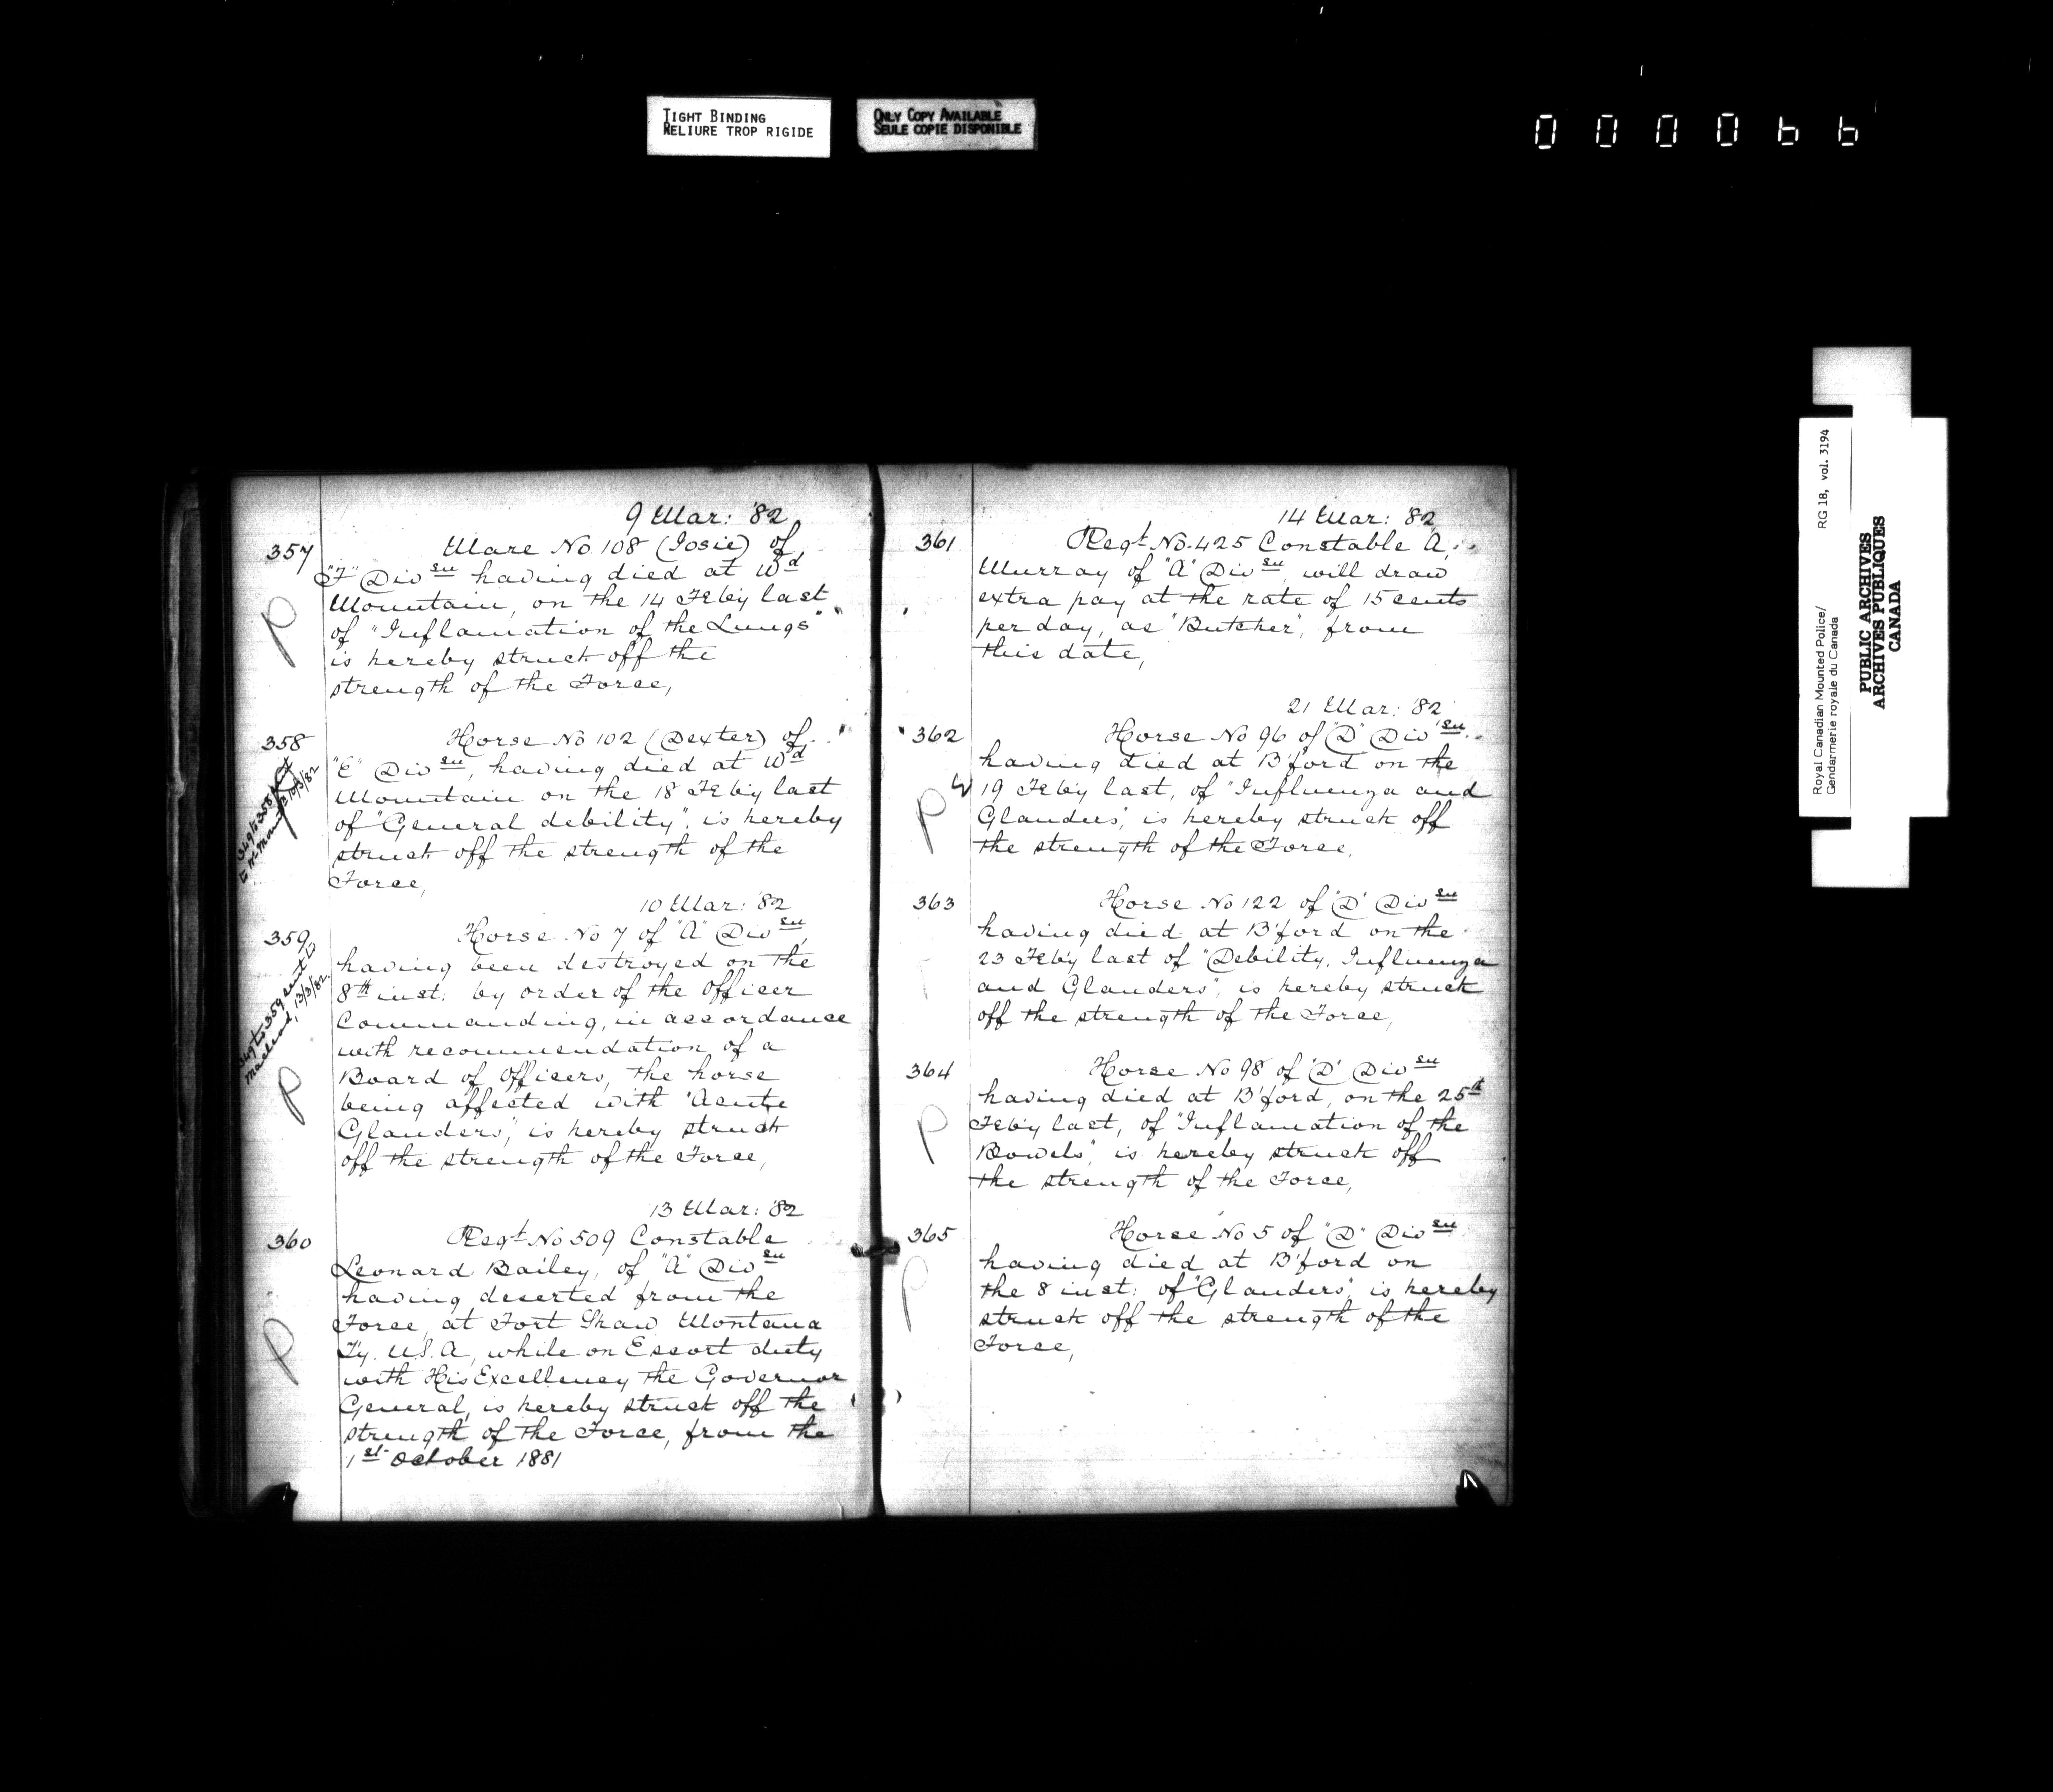 TIGHT BINDING
RELIURE TROP RIGIDE
ONLY COPY AVAILABLE
SEULE COPIE DISPONIBLE
000066
9 Mar: '82
357
Mare No. 108 (Josie) of
"F" Divsn having died at Wd
Mountain, on the 14 Feb'y last
of "Inflamation of the Lungs"
is hereby struck off the
strength of the Force,
P
358
Horse No 102 (Dexter) of
"E" Divsn, having died at Wd
Mountain on the 18 Feb'y last
of "General debility", is hereby
struck off the strength of the
Force,
349 to 358
10/3/82
10 Mar: '82
359
Horse No 7 of "A" Divsn,
having been destroyed on the
8th inst: by order of the Officer
Commanding, in accordance
with recommendation of a
Board of Officers, the horse
being affected with "Acute
Glanders", is hereby struck
off the strength of the Force,
349 to 359 sent to
Macleod, 13/3/82
P
13 Mar: '82
360
Regt No 509 Constable
Leonard Bailey, of "A" Divsn
having deserted from the
Force, at Fort Shaw Montana
Ty. U.S.A, while on Escort duty
with His Excellency the Governor
General, is hereby struck off the
strength of the Force, from the
1st October 1881
P
14 Mar: '82
361
Regt No. 425 Constable A,
Murray of "A" Divsn, will draw
extra pay at the rate of 15 cents
per day, as "Butcher", from
this date,
21 Mar: '82
362
Horse No 96 of "D" Divsn
having died at B'ford on the
19 Feb'y last, of "Influenza and
Glanders", is hereby struck off
the strength of the Force,
P
363
Horse No 122 of "D" Divsn
having died at B'ford on the
23 Feb'y last of "Debility, Influenza
and Glanders", is hereby struck
off the strength of the Force,
364
Horse No 98 of "D" Divsn
having died at B'ford, on the 25th
Feb'y last, of "Inflamation of the
Bowels", is hereby struck off
the strength of the Force,
P
365
Horse No 5 of "D" Divsn
having died at B'ford on
the 8 inst: of "Glanders", is hereby
struck off the strength of the
Force,
P
Royal Canadian Mounted Police/
Gendarmerie royale du Canada
RG 18, vol. 3194
PUBLIC ARCHIVES
ARCHIVES PUBLIQUES
CANADA